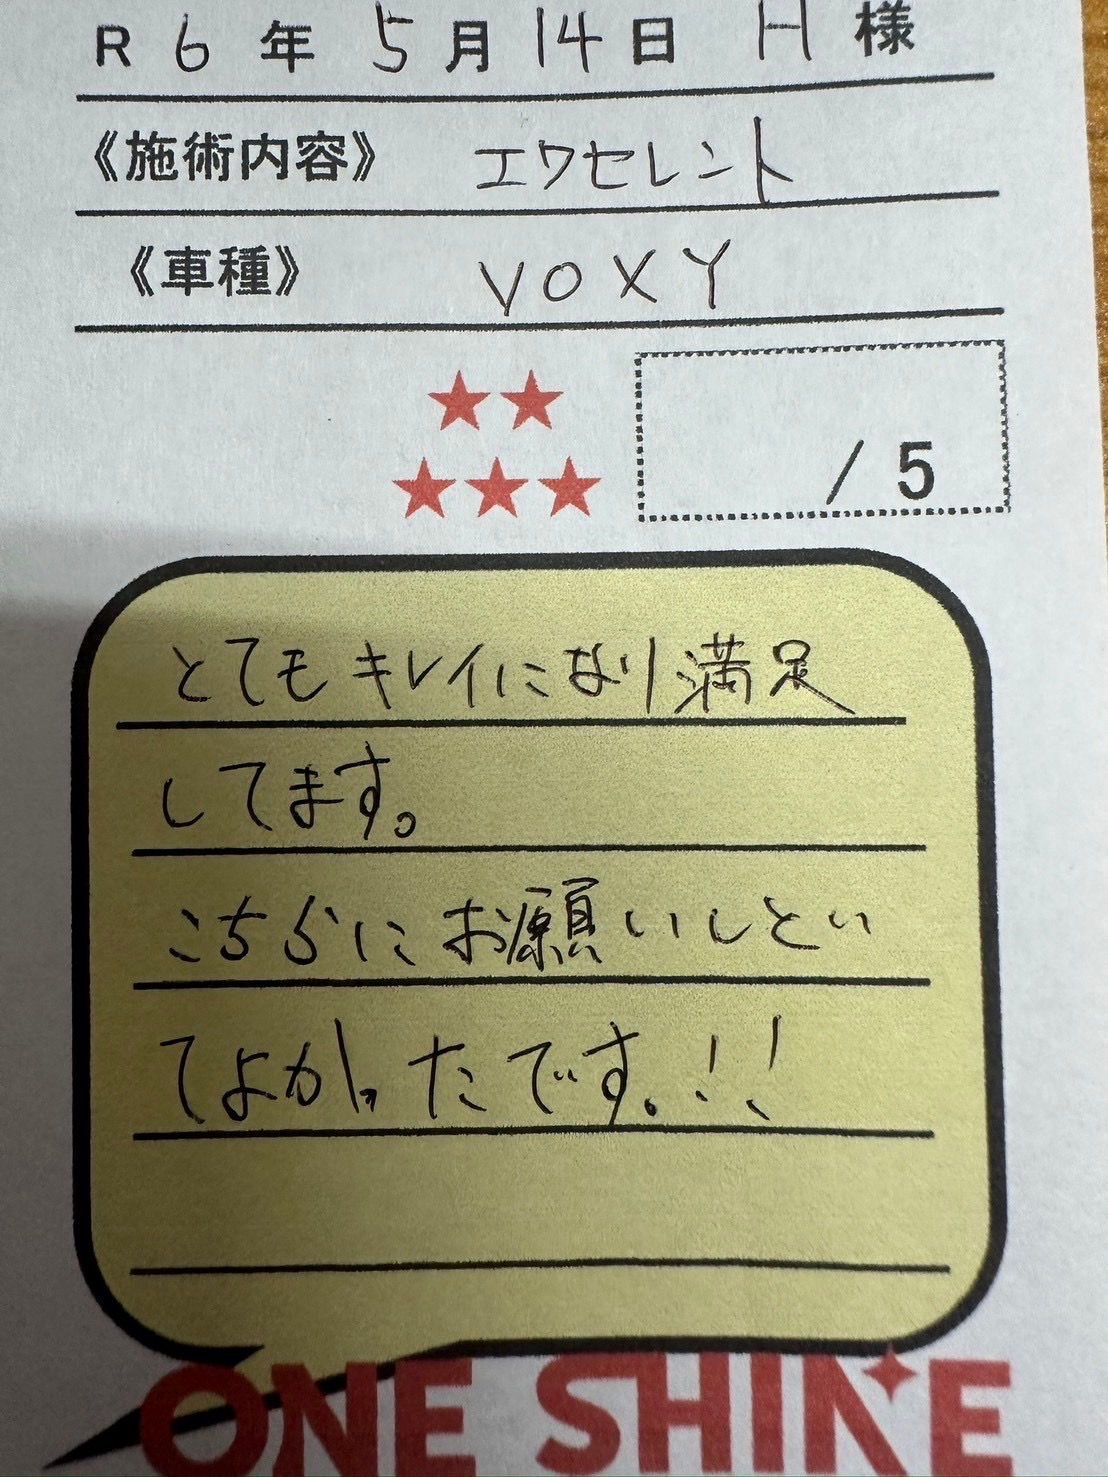 R 6 年 5 月 14 日 H 様
《施術内容》 エクセレント
《車種》 VOXY
★★
★★★
/ 5
とてもキレイになり満足
してます。
こちらにお願いしとい
てよかったです。!!
ONE SHINE